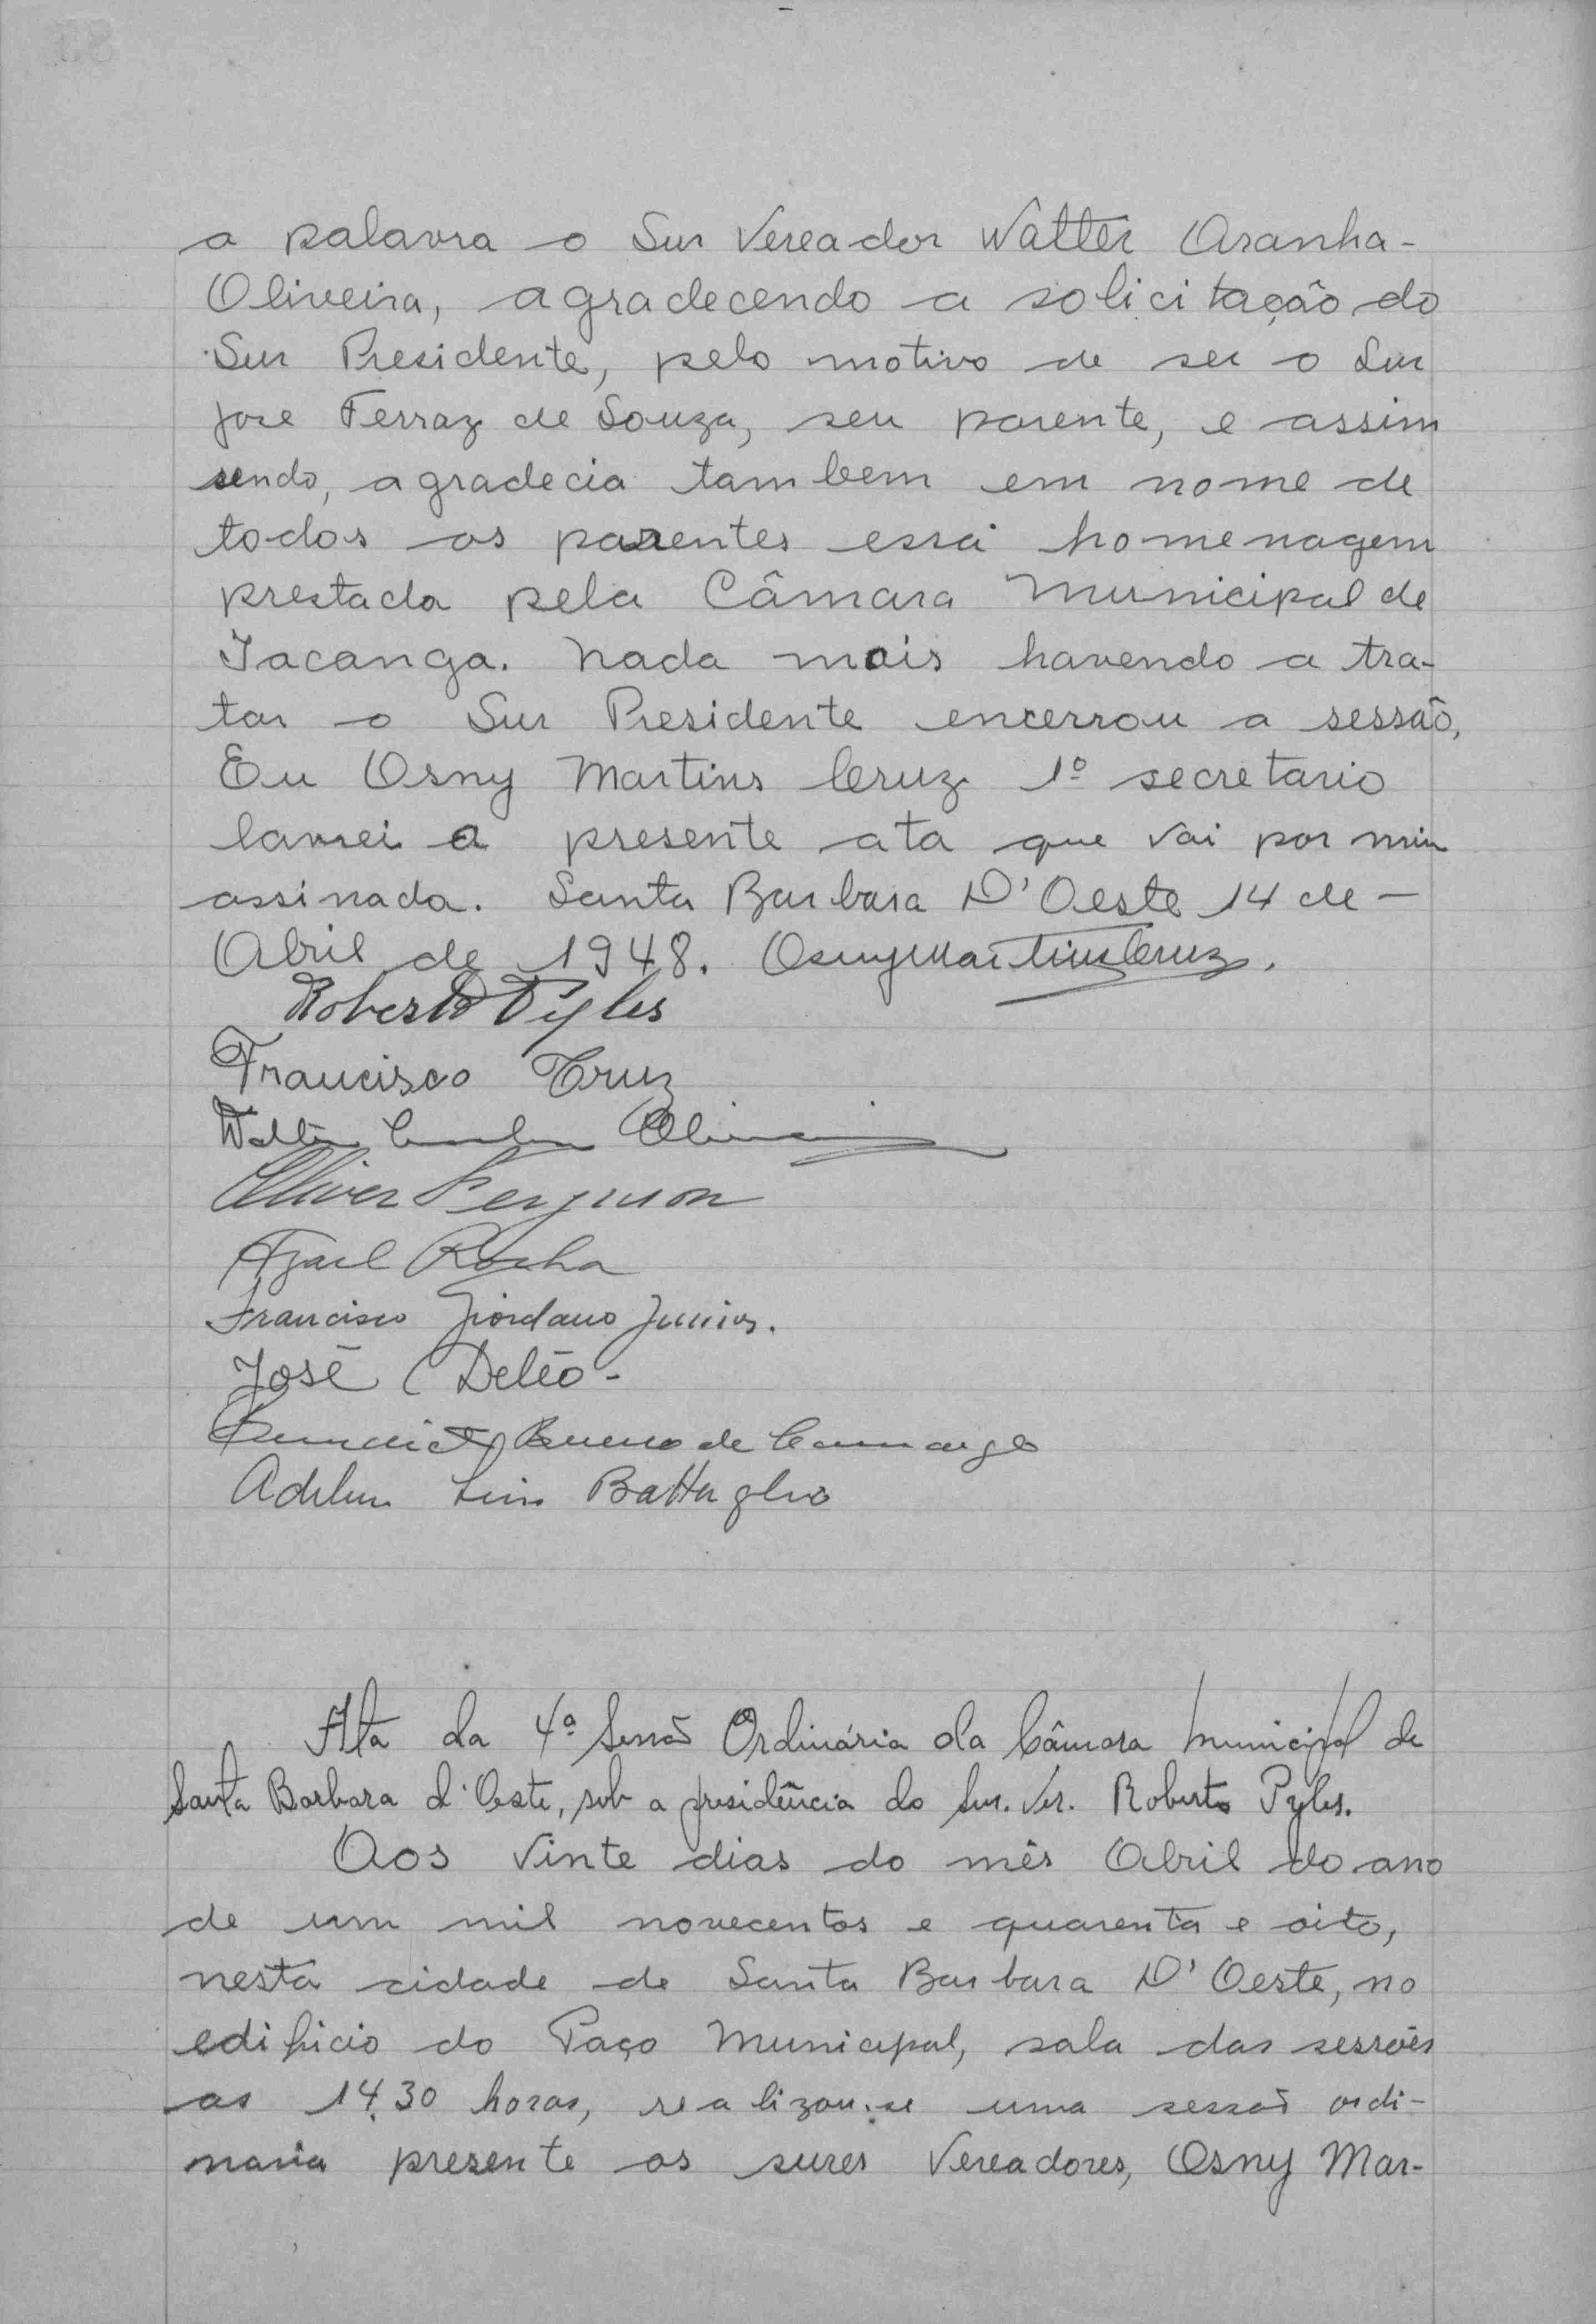 a palavra o Snr Vereador Walter Aranha-
Oliveira, agradecendo a solicitação do
Snr Presidente, pelo motivo de ser o Snr
José Ferraz de Souza, seu parente, e assim
sendo, agradecia tambem em nome de
todos os parentes essa homenagem
prestada pela Câmara Municipal de
Iacanga. Nada mais havendo a tra-
tar o Snr Presidente encerrou a sessão,
Eu Osny Martins Cruz 1º secretario
lavrei a presente ata que vai por mim
assinada. Santa Barbara D'Oeste 14 de-
Abril de 1948. Osny Martins Cruz.
Roberto Pyles
Francisco Cruz
Walter Aranha Oliveira
Oliver Ferguson
Azael Rocha
Francisco Giordano Junior.
José Deléo-
Benedicto Bueno de Camargo
Luis Battaglia
Ata da 4ª Sessão Ordinária da Câmara Municipal de
Santa Barbara d'Oeste, sob a presidência do Snr. Ver. Roberto Pyles.
Aos vinte dias do mês Abril do ano
de um mil novecentos e quarenta e oito,
nesta cidade de Santa Barbara D'Oeste, no
edificio do Paço Municipal, sala das sessões
as 14.30 horas, realizou-se uma sessão ordi-
naria presente os snres Vereadores, Osny Mar-